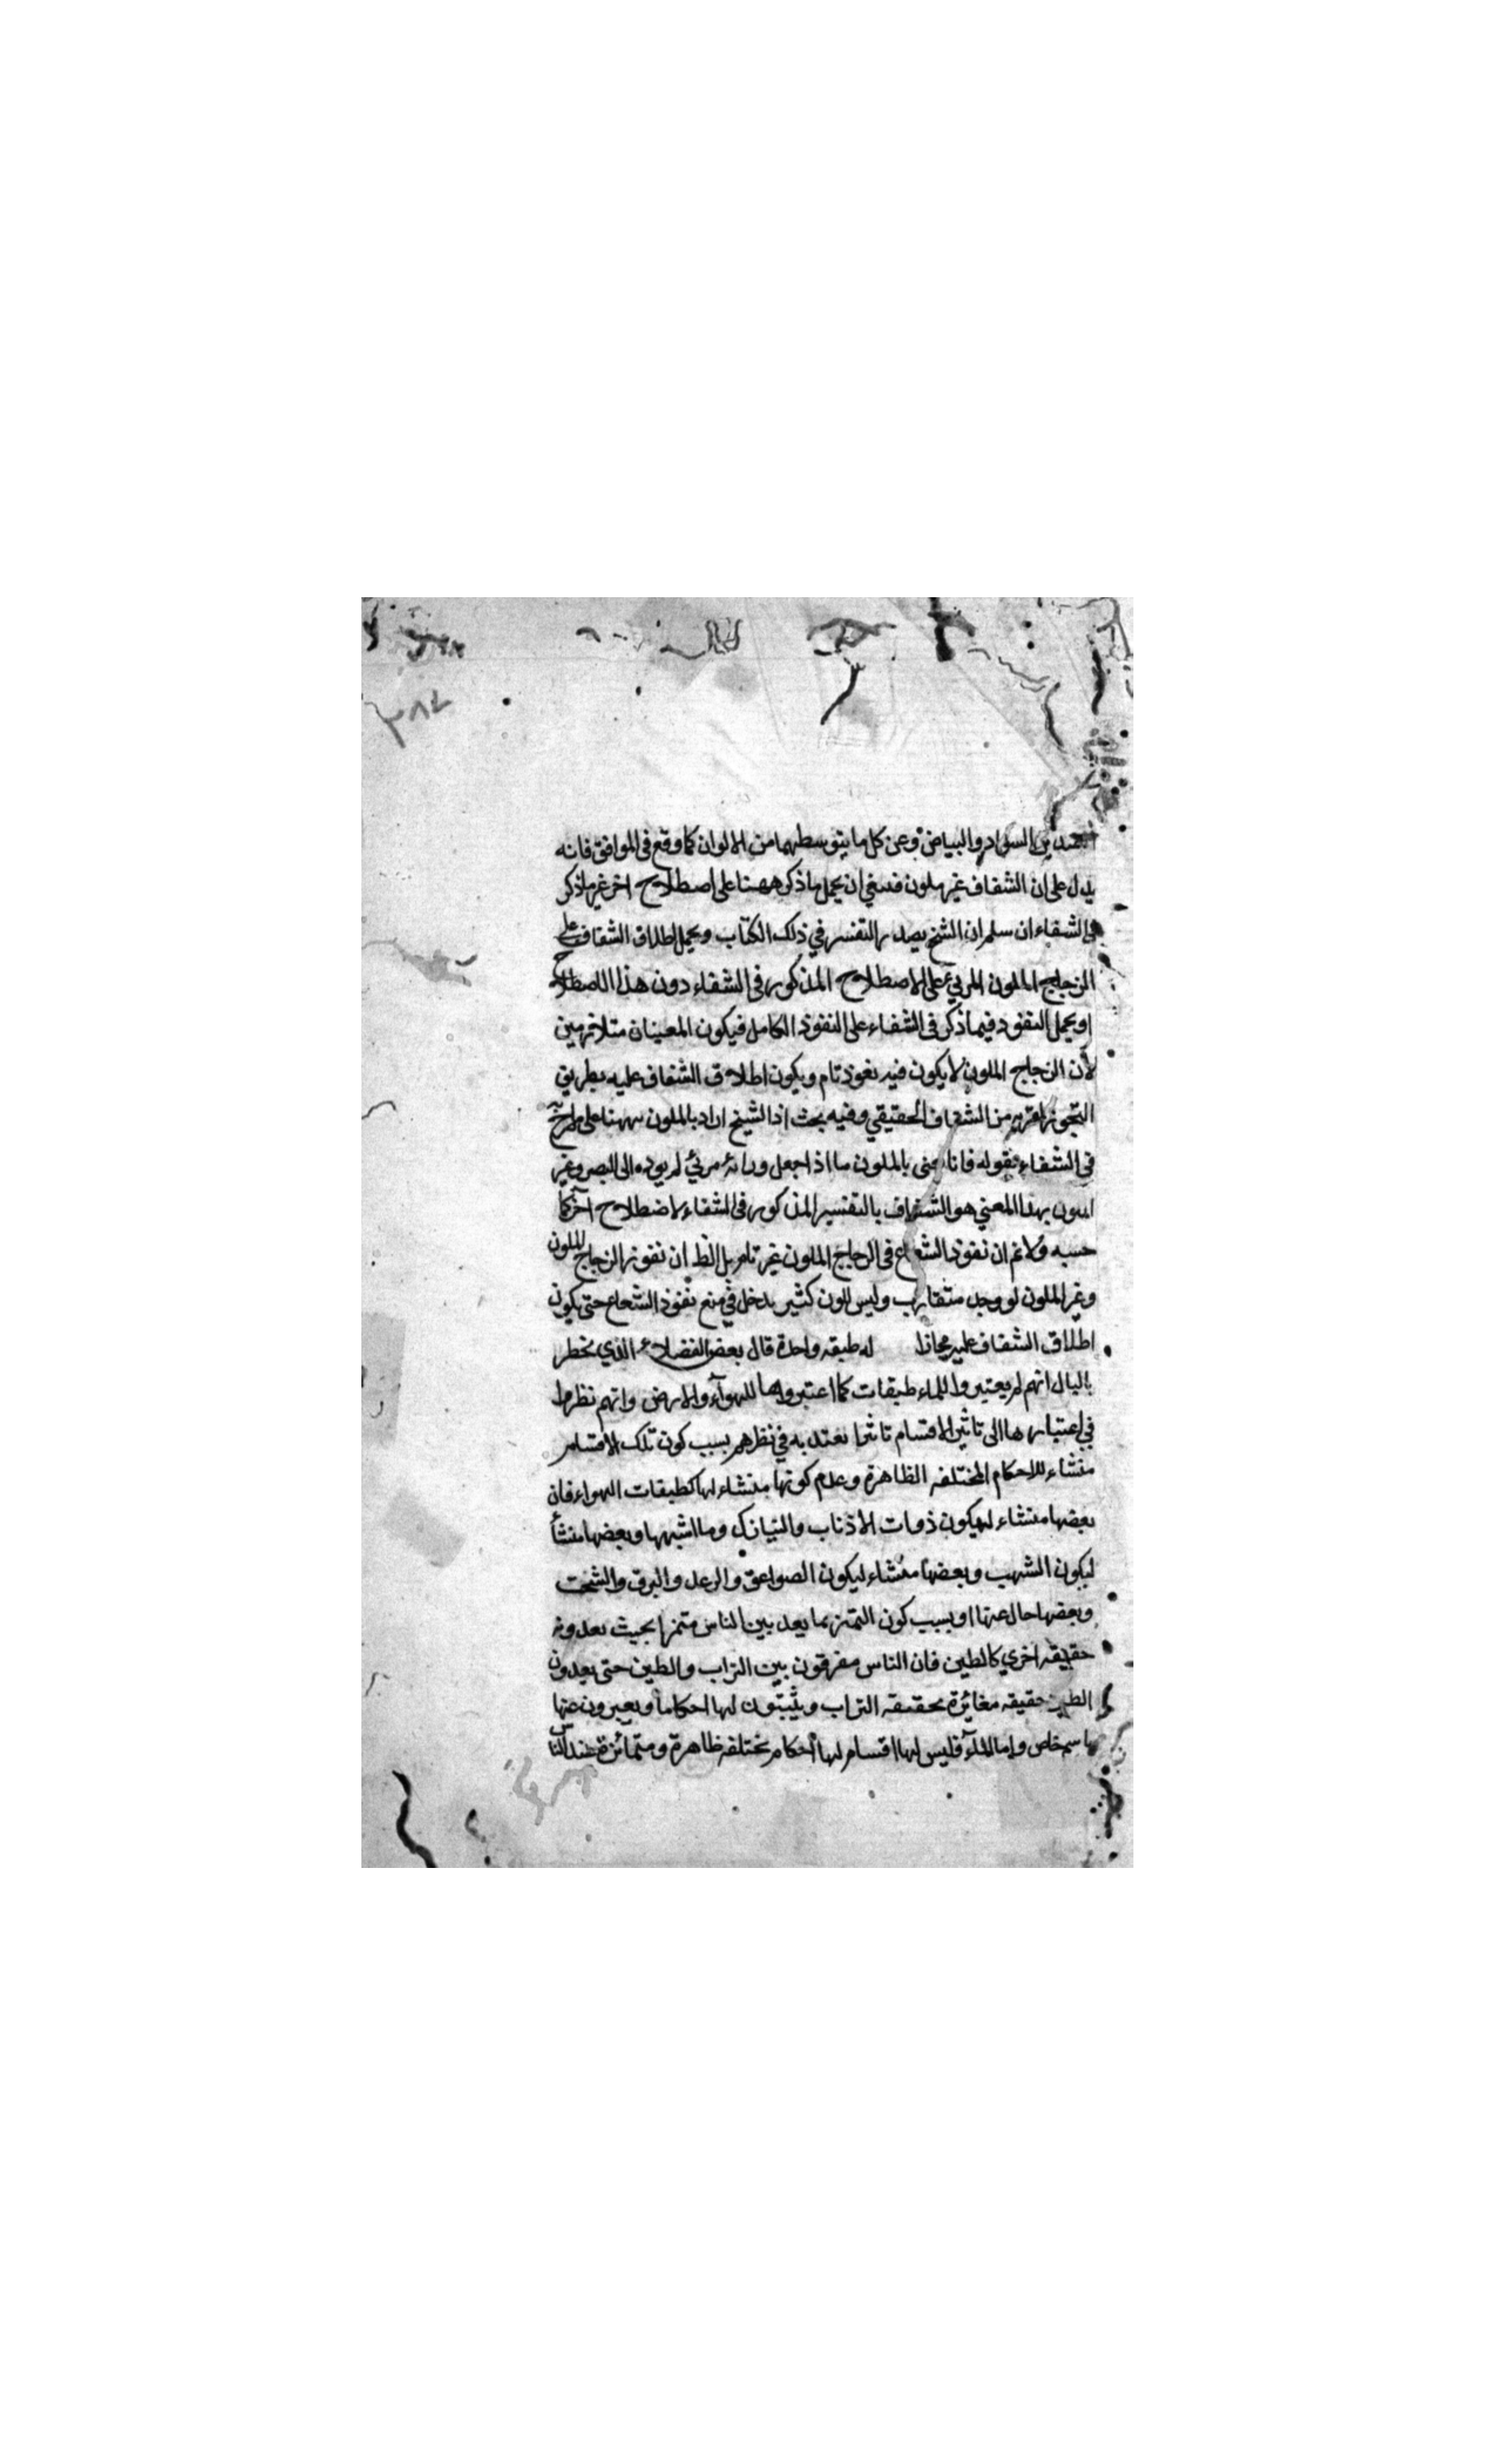 ٣٨٢
السواد والبياض وعن كل ما يتوسطهما من الالوان كما وقع فى المواقف فانه
يدل على ان الشفاف غير ملون فينبغي ان يحمل ما ذكر ههنا على اصطلاح اخر غير ما ذكر
فى الشفاء ان سلم ان الشيخ بصدد التفسير في ذلك الكتاب ويحمل اطلاق الشفاف على
الزجاج الملون المرئي على الاصطلاح المذكور فى الشفاء دون هذا الاصطلاح
او يحمل النفوذ فيما ذكر فى الشفاء على النفوذ الكامل فيكون المعنيان متلازمين
لأن الزجاج الملون لا يكون فيه نفوذ تام ويكون اطلاق الشفاف عليه بطريق
التجوز لقربه من الشفاف الحقيقي وفيه بحث اذ الشيخ اراد بالملون ههنا على ما صرح به
فى الشفاء بقوله فانا نعنى بالملون ما اذا جعل وراءه مرئي لم يوده الى البصر وغير
الملون بهذا المعني هو الشفاف بالتفسير المذكور فى الشفاء لا اصطلاح آخر كما
حسبه ولا نم ان نفوذ الشعاع فى الزجاج الملون غير تام بل الظ ان نفوذ الزجاج الملون
وغير الملون لو وجد متقارب وليس للون كثير دخل في منع نفوذ الشعاع حتى يكون
اطلاق الشفاف عليه مجازا له طبقه واحدة قال بعض الفضلاء الذي يخطر
بالبال انهم لم يعتبروا للماء طبقات كما اعتبروها للهوآء والارض وانهم نظروا
في اعتبارها الى تاثير الاقسام تاثيرا يعتد به في نظرهم بسبب كون تلك الاقسام
منشاء للاحكام المختلفه الظاهرة وعدم كونها منشاء لها كطبقات الهواء فان
بعضها منشاء ليكون ذوات الاذناب والنيازك وما اشبهها وبعضها منشأ
ليكون الشهب وبعضها منشاء ليكون الصواعق والرعد والبرق
وبعضها حال عنها او بسبب كون التميز بما يعد بين الناس متميزا بحيث يعدونه
حقيقه اخري كالطين فان الناس مفرقون بين التراب والطين حتى يعدون
الطين حقيقه مغائرة بحقيقه التراب ويثبتون لها احكاما ويعبرون عنها
باسم خاص واما المآء فليس لها اقسام لها أحكام مختلفه ظاهرة ومتمائزة عند الناس